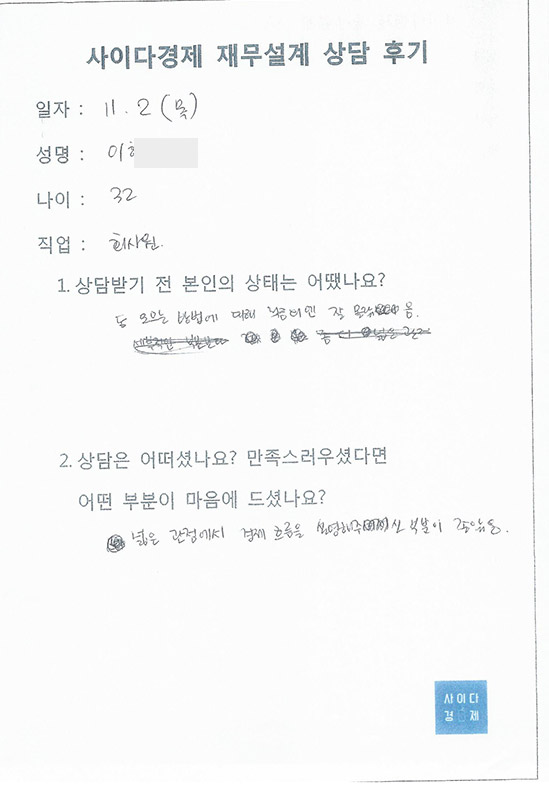 사이다경제 재무설계 상담 후기
일자 : 11. 2 (목)
성명 : 이
나이 : 32
직업 : 회사원.
1. 상담받기 전 본인의 상태는 어땠나요?
돈 모으는 방법에 대해 잘 음.
2. 상담은 어떠셨나요? 만족스러우셨다면
어떤 부분이 마음에 드셨나요?
넓은 관점에서 경제 흐름을 설명해주신 부분이 좋았음.
사이다
경제